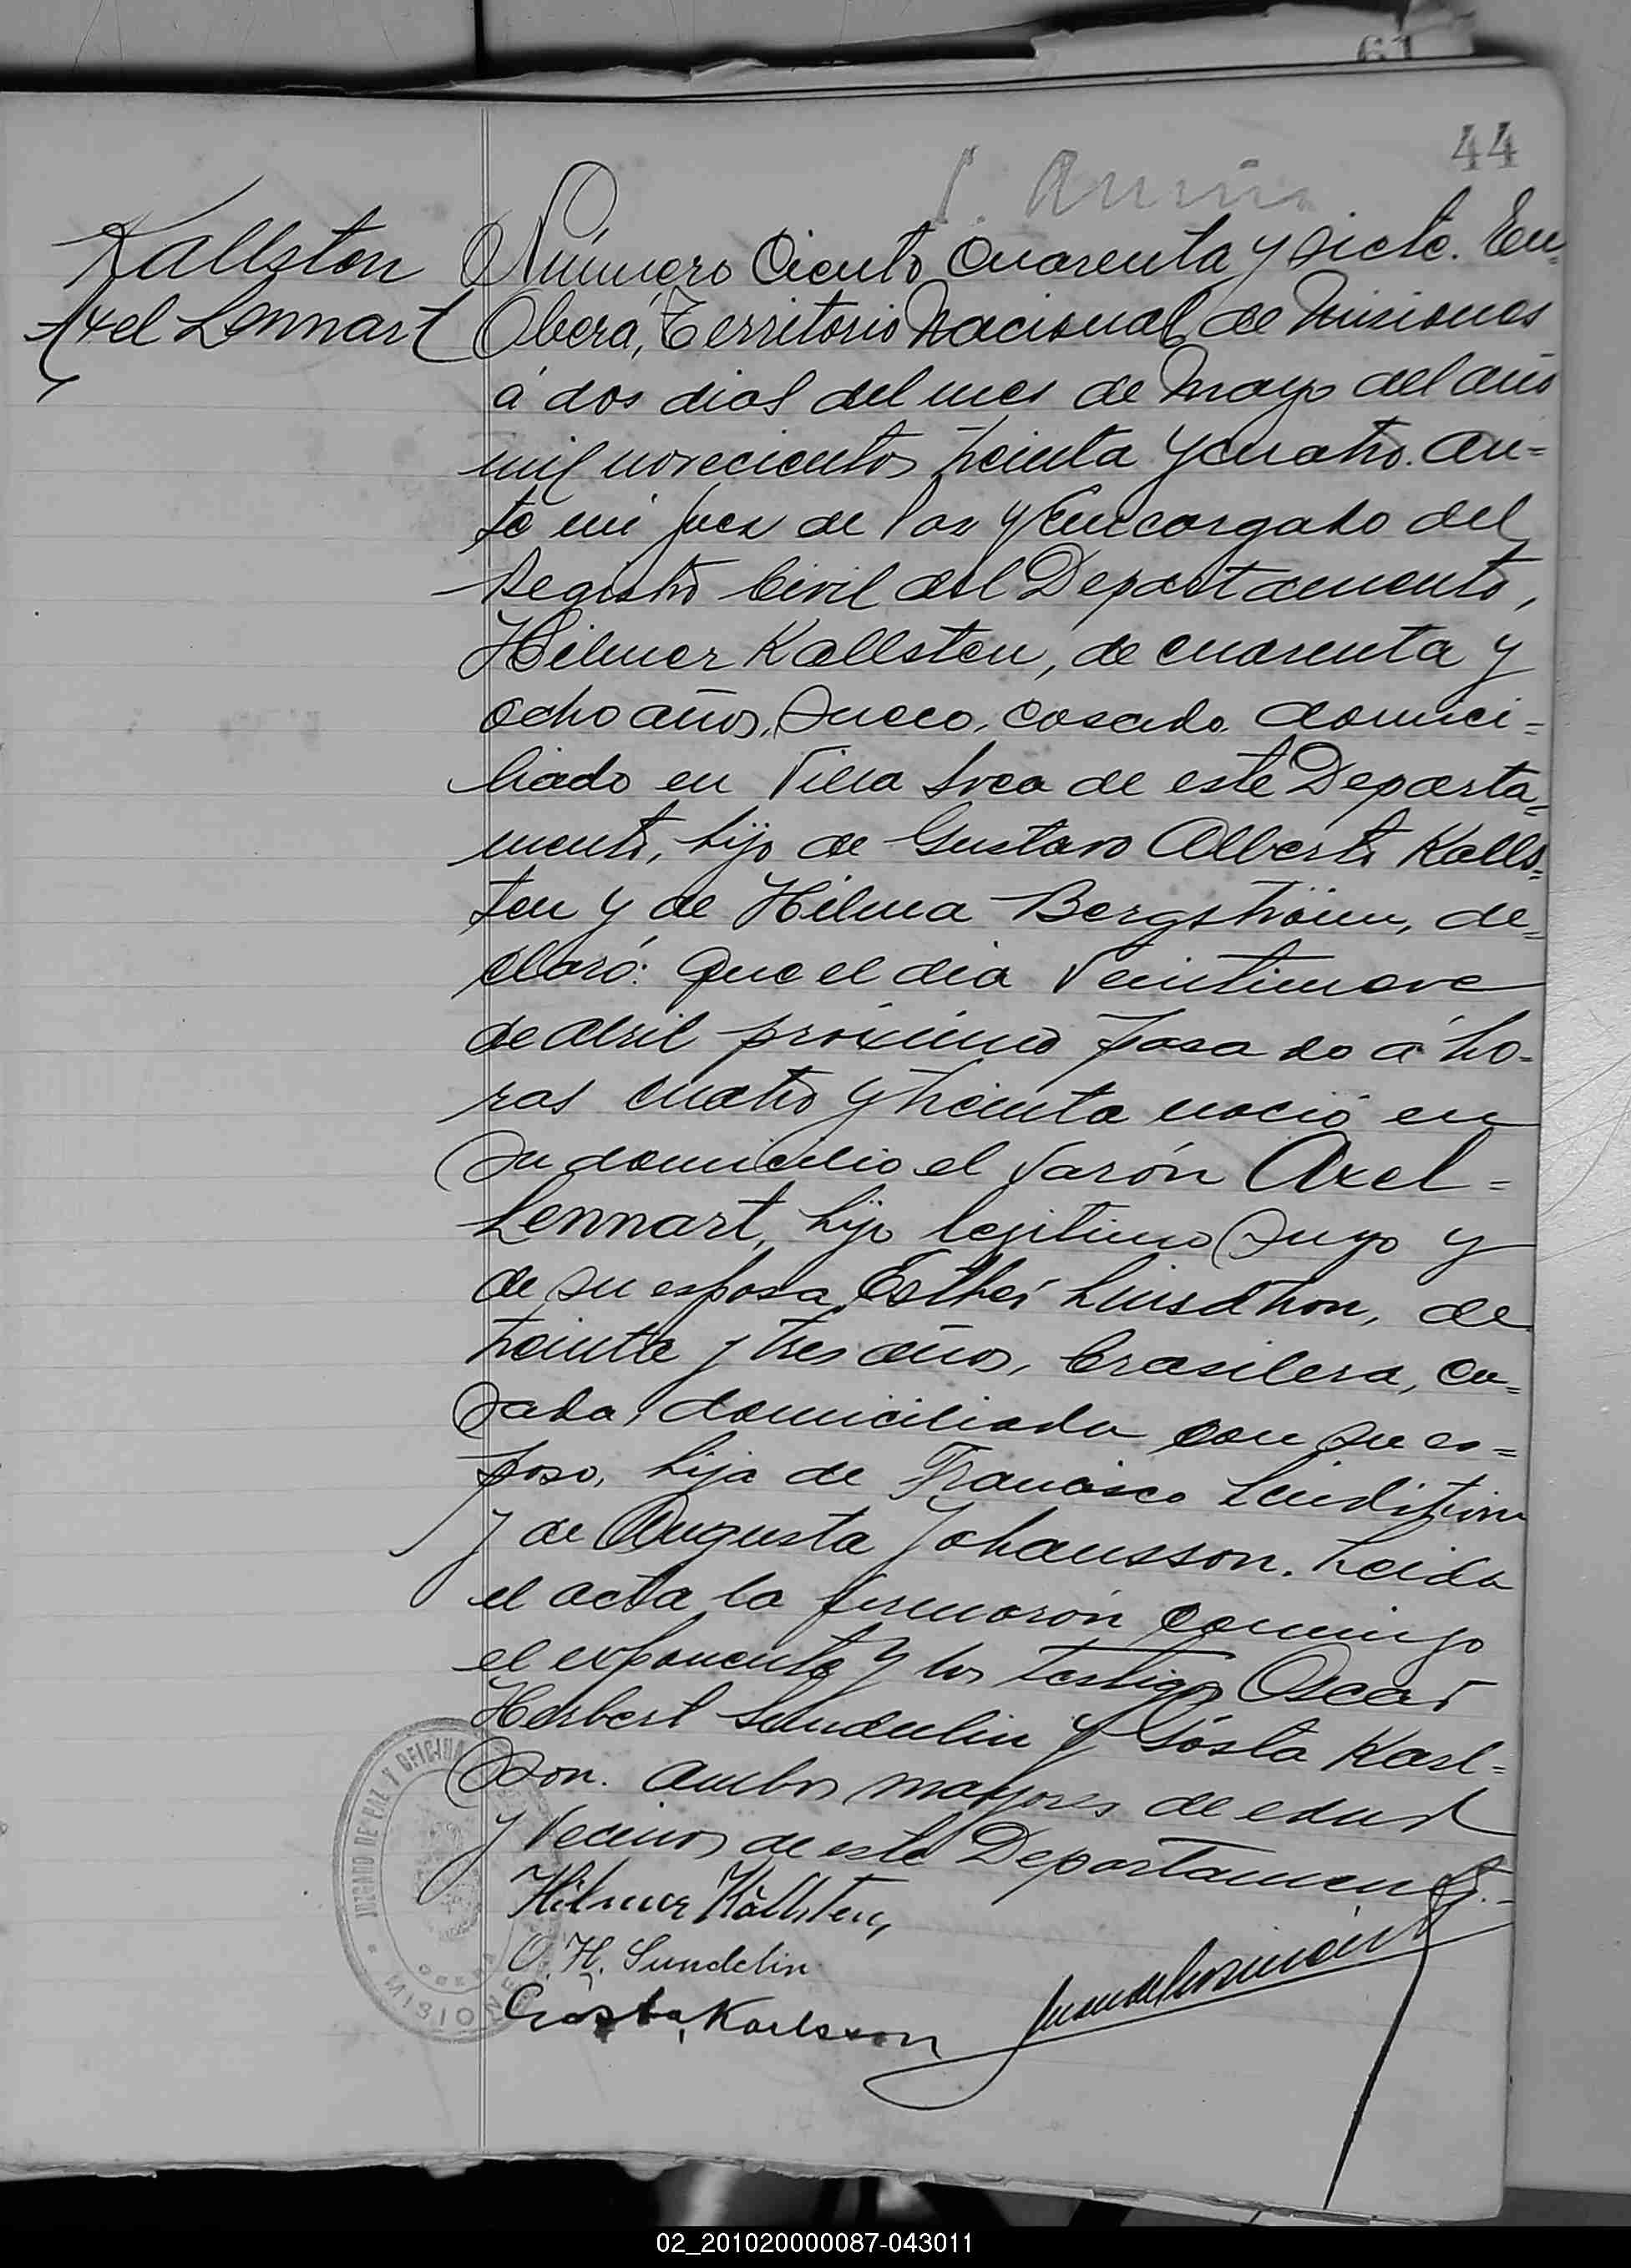 44
Kallsten
Axel Lennart
Número Ciento Cuarenta y siete. En
Oberá, Territorio Nacional de Misiones
á dos dias del mes de Mayo del año
mil novecientos treinta y cuatro. an=
te mi Juez de Paz y Encargado del
Registro Civil del Departamento,
Hilmer Kallsten, de cuarenta y
ocho años, sueco, casado, domici=
liado en Villa Svea de este Departa=
mento, hijo de Gustavo Alberto Kalls=
ten y de Hilma Bergström, de=
claró: Que el dia veintinueve
de Abril próximo pasado á ho-
ras cuatro y treinta nació en
su domicilio el varón Axel=
Lennart, hijo legitimo suyo y
de su esposa Esther, de
treinta y tres años, brasilera, ca=
sada, domiciliada con su es=
poso, hija de Francisco
y de Augusta Johansson. Leida
el acta la firmarón conmigo
el exponente y los testigos Oscar
Herbert Sundelin y Gösta Karl=
son. ambos mayores de edad
y vecinos de este Departamento.-
Hilmer Källsten,
O. H. Sundelin
Gösta Karlsson
JUZGADO DE PAZ Y OFICINA
MISIONES
02_201020000087-043011